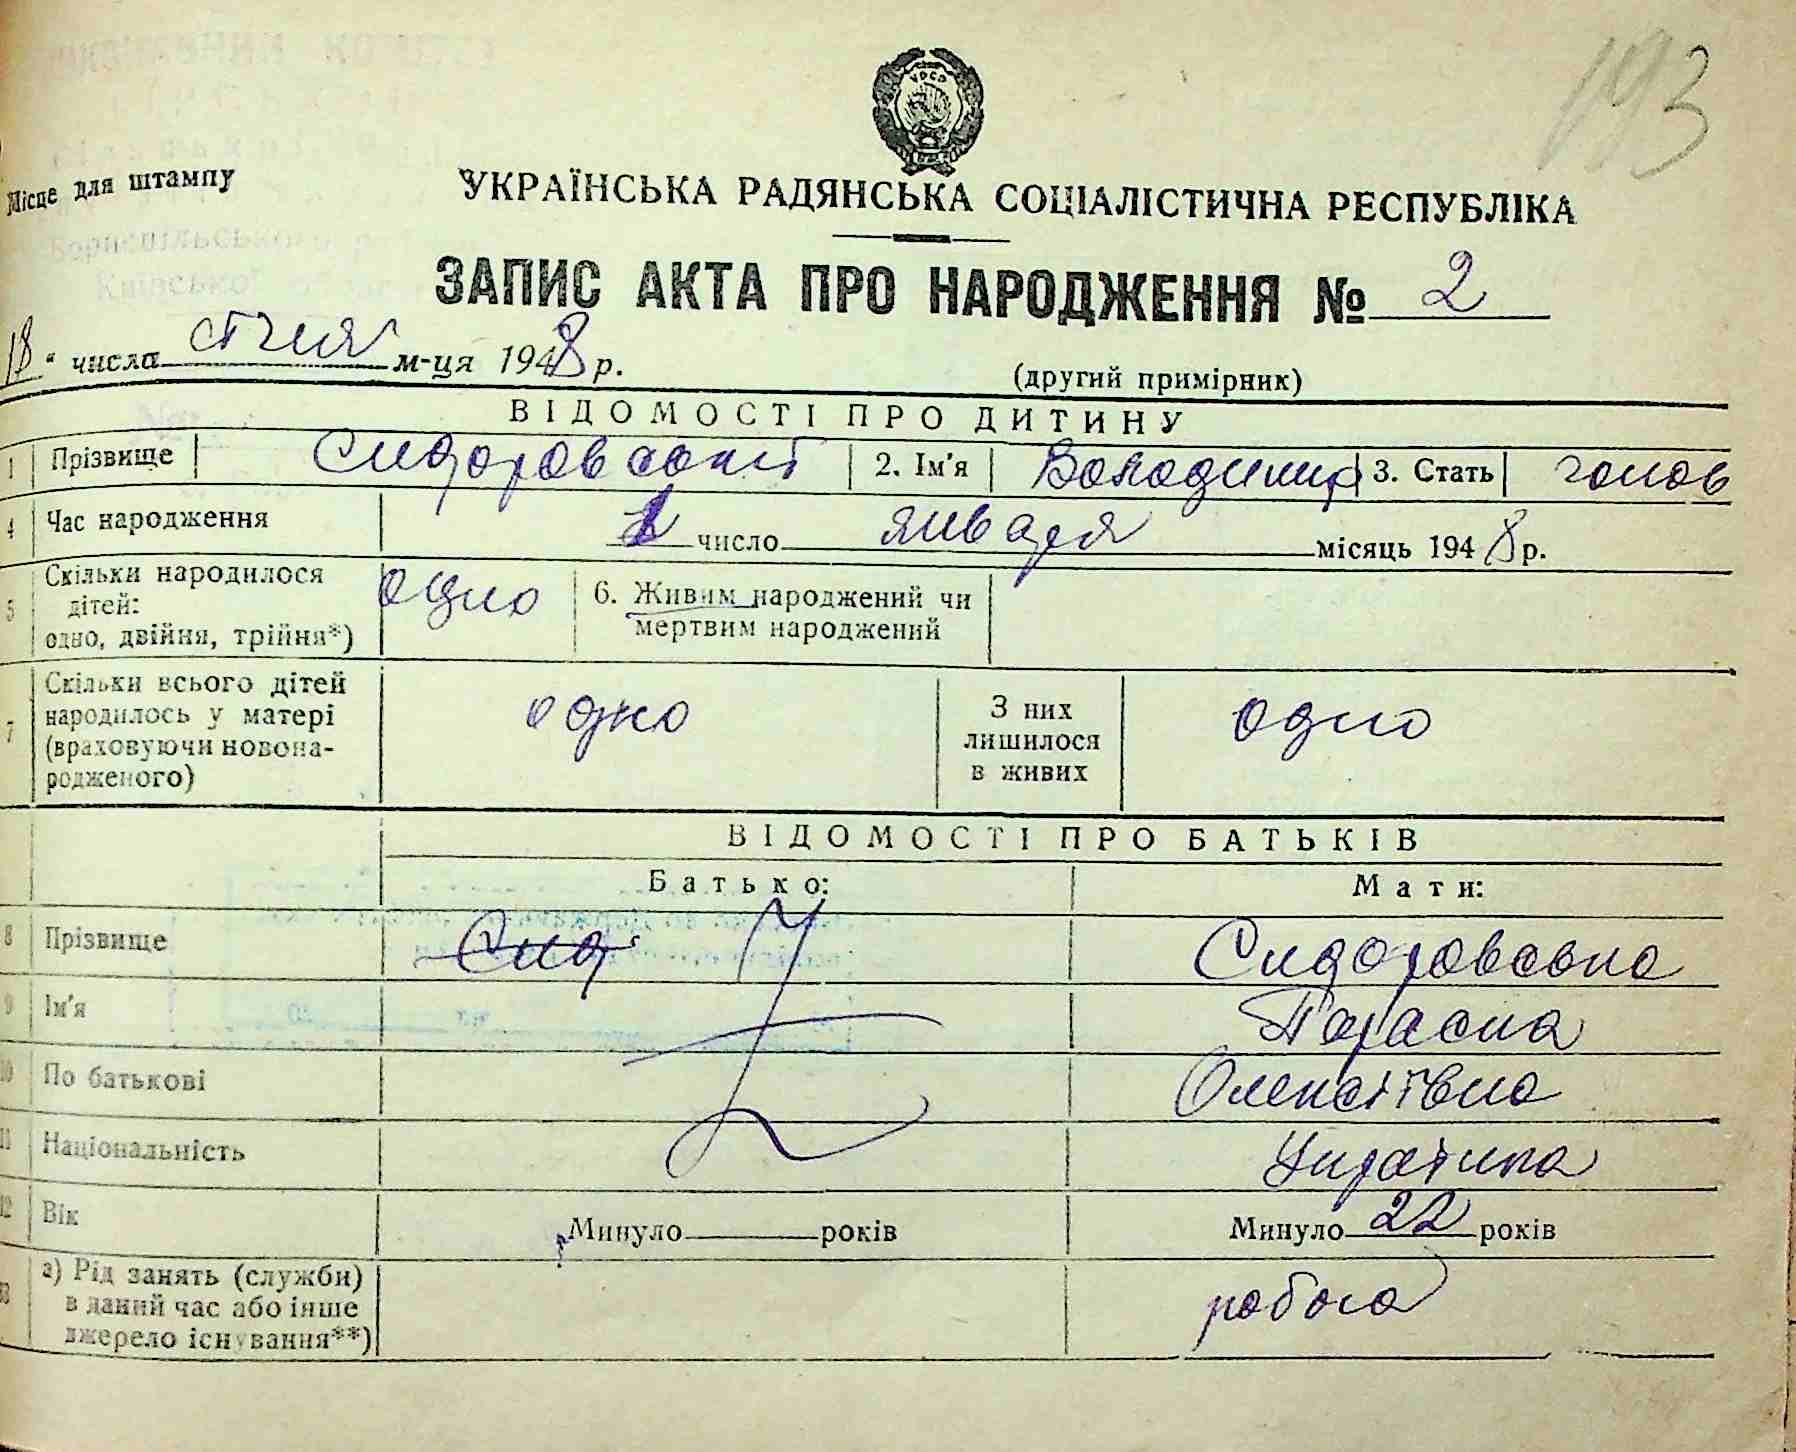 193
УРСР
Місце для штампу
УКРАЇНСЬКА РАДЯНСЬКА СОЦІАЛІСТИЧНА РЕСПУБЛІКА
ЗАПИС АКТА ПРО НАРОДЖЕННЯ № 2
18 " числа січня м-ця 1948 р.
(другий примірник)
ВІДОМОСТІ ПРО ДИТИНУ
1 Прізвище Сидоровский 2. Ім'я Володимир 3. Стать чолов
4 Час народження 1 число января місяць 1948 р.
5 Скільки народилося дітей: одно, двійня, трійня*) одно 6. Живим народжений чи мертвим народжений
7 Скільки всього дітей народилось у матері (враховуючи новонародженого) одно З них лишилося в живих одно
ВІДОМОСТІ ПРО БАТЬКІВ
Батько: Мати:
8 Прізвище Сид Сидоровська
9 Ім'я Параска
10 По батькові Олексіївна
11 Національність Українка
12 Вік Минуло років Минуло 22 років
13 а) Рід занять (служби) в даний час або інше джерело існування**)